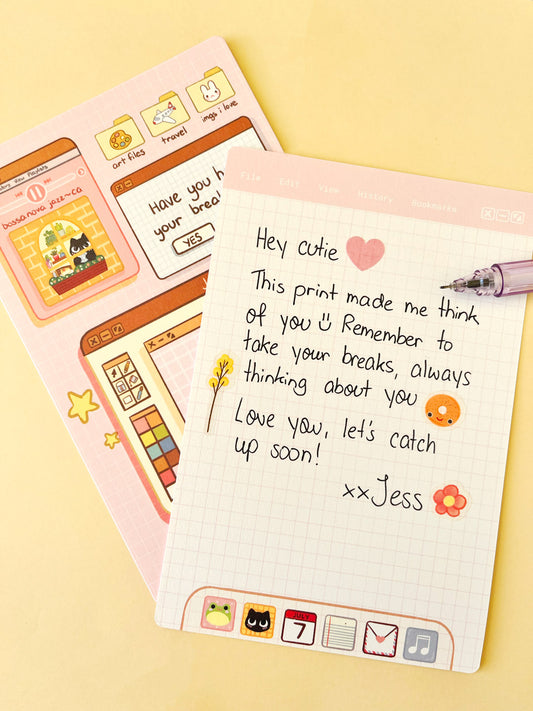 art files
travel
imgs i love
View Playlists
bossa nova jazz~ca
Have you h
your brea
YES
File Edit View History Bookmarks
Hey cutie
This print made me think
of you Remember to
take your breaks, always
thinking about you
Love you, let's catch
up soon!
xxJess
JULY
7